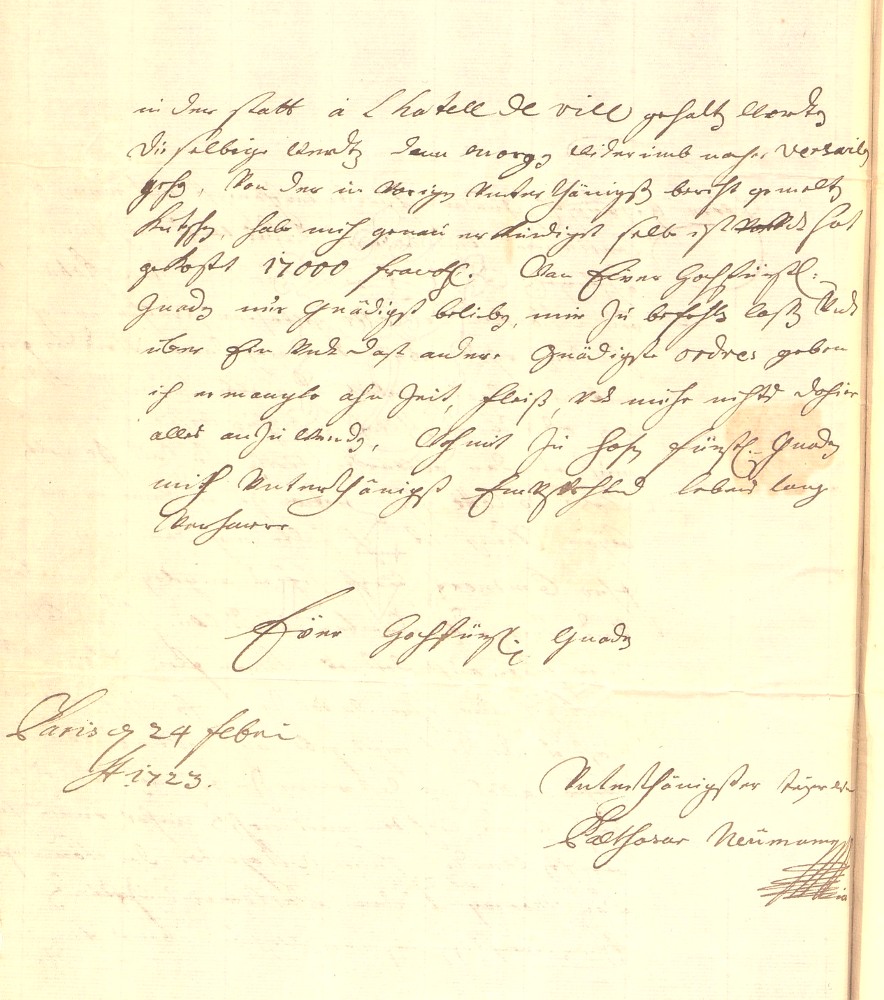 in der statt à L hotell de vill gehalten worden
die selbige werden dann morgen widerumb nacher Versailen
gehen, Von der in Vorigen Unterthänigst bericht gemelten
Kutschen, habe mich genau erkundiget selbe ist hat
gekost 17000 francs. Wan Eüer Hochfürstl:
Gnaden nur gnädigst belieben, mir zu befehlen lassen Undt
über Ein Undt dass andere Gnädigste ordres geben
ich ermangle ahn Zeit, fleiß, Undt mühe nichts dahier
alles anzuwenden, Womit zu hochfürstl. Gnaden
mich Unterthänigst Empfehlend lebens lang
Verharre
Eüer Hochfürstl: Gnaden
Paris d 24 febri
A 1723.
Unterthänigster
Balthasar Neümann